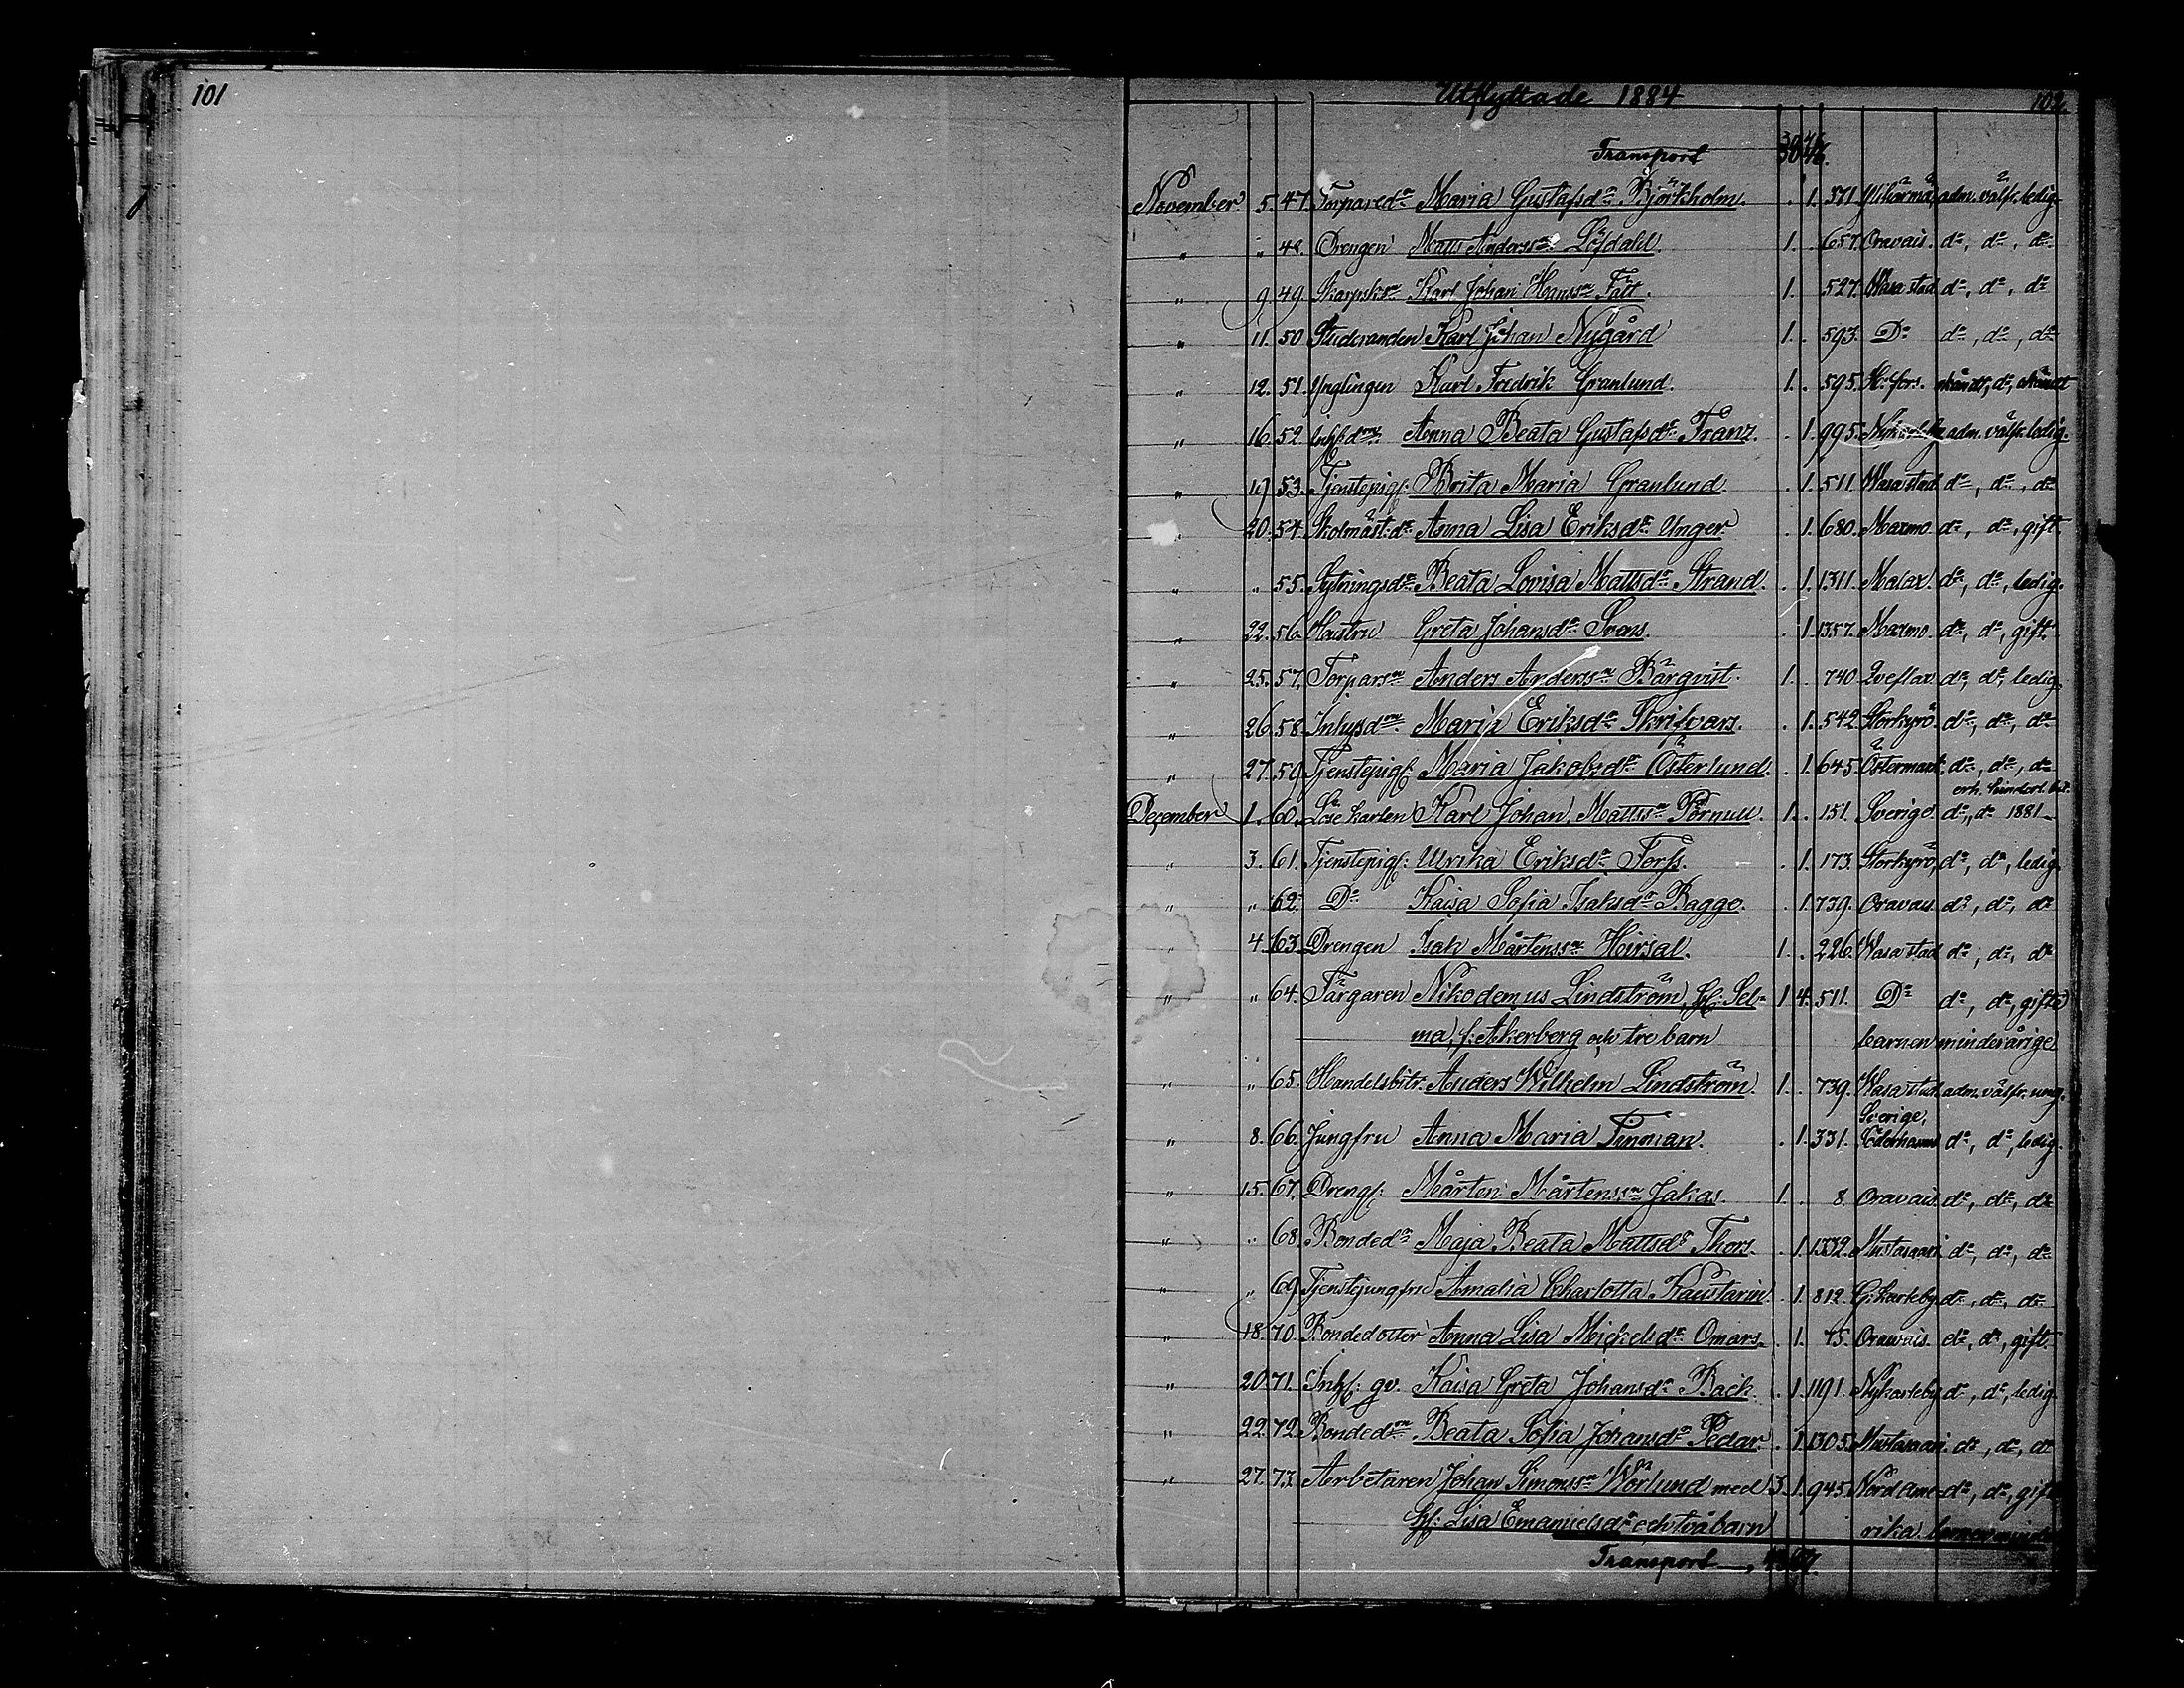 101
Utflyttade 1884
102.
Transport 30 46.
November 5. 47. Torpareda Maria Gustafsda Björkholm. . 1. 371 adm. välfr. ledig.
" " 48. Drengen Matts Anderssn Löfdahl. 1. . 657. Oravais. do, do, do
" 9. 49. Skarpsksn Karl Johan Hanssn Fält. 1. 527. Wasa stad do, do, do
" 11. 50 Studeranden Karl Johan Nygård 1. . 593. Do do, do, do
" 12. 51. Ynglingen Karl Fredrik Granlund. 1. . 595. H:fors. okändt, do, okändt
" 16. 52 Inhs dnn Anna Beata Gustafsdr Franz. . 1. 995. Nykarleby adm. välfr. ledig.
" 19. 53. Tjenstepig: Brita Maria Granlund. . 1. 511. Wasa stad do, do, do
" 20. 54. Skolmäst:dr Anna Lisa Eriksdr Unger . 1. 680. Maxmo. do, do, gift.
" " 55. Sytningsdr Beata Lovisa Mattsdr Strand. . 1. 1311. Malax. do, do, ledig.
" 22. 56. Hustru Greta Johansdr Svens. . 1. 1357. Maxmo. do, do, gift.
" 25. 57. Torparsn Anders Anderssn Bärqvist. 1. . 740 Qveflax do, do, ledig.
" 26. 58. Inhysdnn Maria Eriksdr Skrifvars. . 1. 542. Storkyrö. do, do, do
" 27. 59. Tjenstepig: Maria Jakobsdr Österlund. . 1. 645. Östermark. do, do, do
December 1. 60. Löse karlen Karl Johan Mattssn Pörnull. 1. . 151. Sverige. do, do 1881
" 3. 61. Tjenstepig: Ulrika Eriksdr Forss. . 1. 173. Storkyrö, do, do, ledig.
" " 62. Do Kaisa Sofia Isaksdr Bagge. . 1. 739. Oravais. do, do, do
" 4. 63. Drengen Isak Mårtenssn Heirsal. 1. . 226. Wasa stad do, do, do
" " 64. Färgaren Nikodemus Lindström, h: Sel- 1 4. 511. Do do, do, gifta
ma, f: Åkerberg och tre barn barnen minderårige
" " 65. Handelsbitr. Anders Wilhelm Lindström. 1. . 739. Wasa stad adm. välfr. ung.
Sverige,
" 8. 66. Jungfru Anna Maria Finman. . 1. 331. Söderhamn do, do, ledig.
" 15. 67. Dreng: Mårten Mårtenssn Jakas. 1. . 8. Oravais. do, do, do
" " 68. Bondedr Maja Beata Mattsdr Thors. . 1. 1332. Mustasaari do, do, do
" " 69. Tjenstejungfru Amalia Charlotta Kaustarin . 1. 812. G:Karleby do, do, do
" 18. 70. Bondedotter Anna Lisa Mickelsdr Omars. . 1. 45. Oravais. do, do, gift.
" 20. 71. Inh: gv. Kaisa Greta Johansdr Back. . 1. 1191. Nykarleby do, do, ledig
" 22. 72. Bondednn Beata Sofia Johansdr Pedar. . 1. 1305. Mustasaari. do, do, do
" 27. 73. Arbetaren Johan Simonssn Wörlund med 3 1. 945. Nord Ame- do, do, gift
h: Lisa Emanuelsdr och två barn rika. barnen
Transport